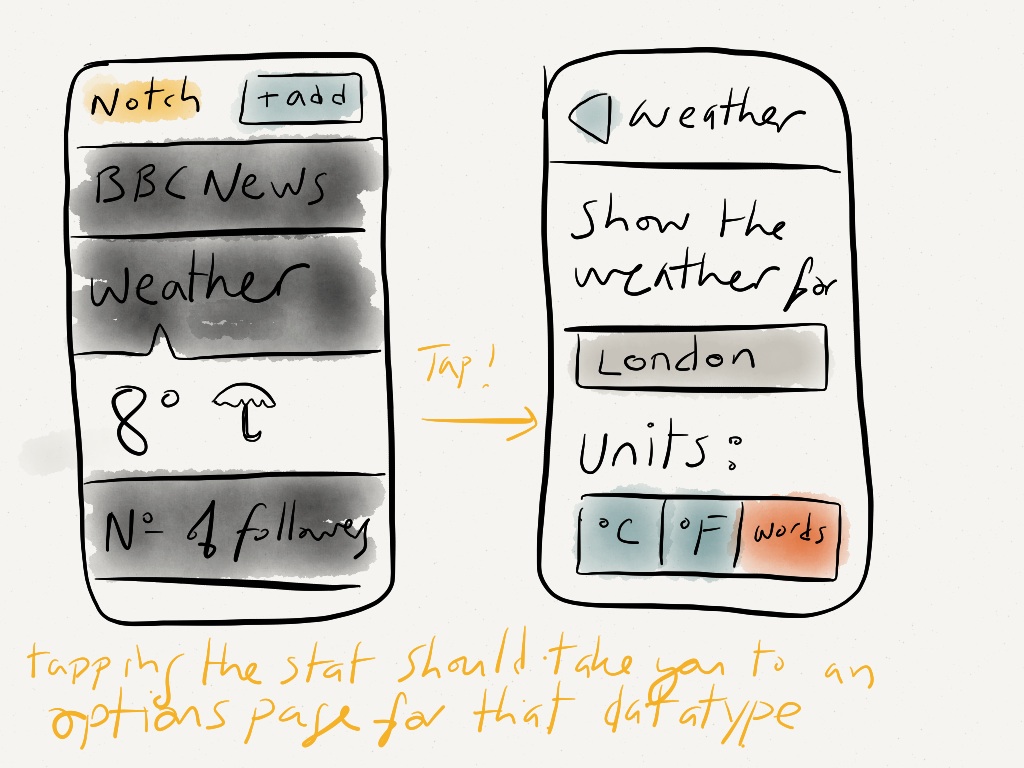 Notch
+add
BBC News
weather
8°
Nº of followers
Tap!
weather
Show the
weather for
London
units:
°C °F words
tapping the stat should take you to an
options page for that datatype